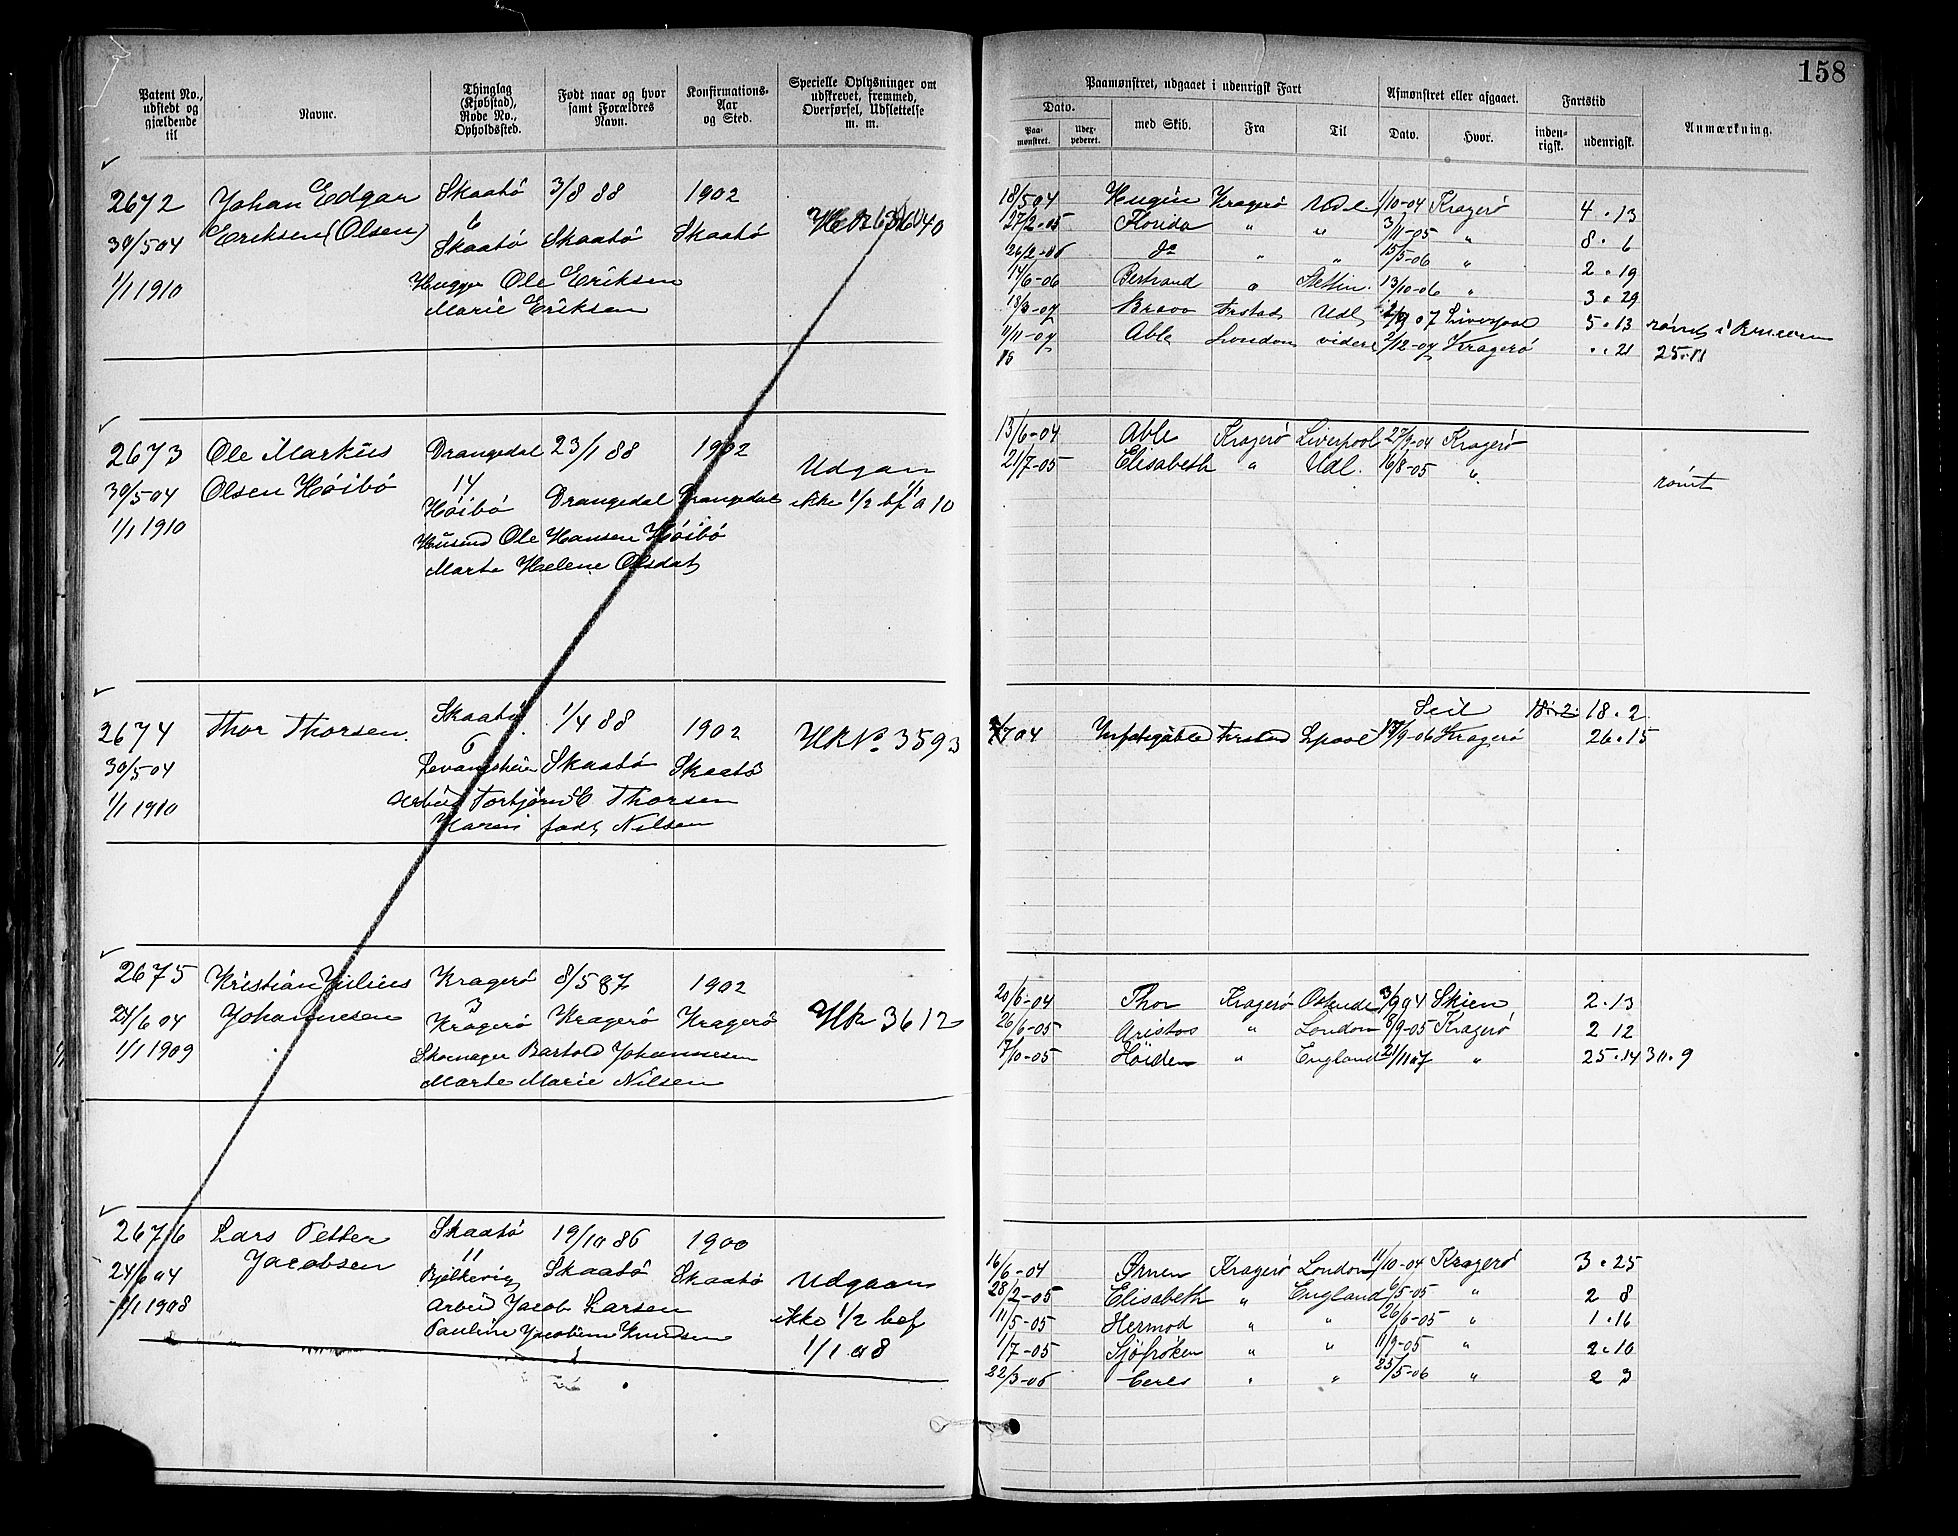 158
Patent No., udstedt og gjældende til
Navne.
Thinglag (Kjøbstad), Rode No., Opholdssted.
Født naar og hvor samt Forældres Navn.
Konfirmations-Aar og Sted.
Specielle Oplysninger om udskrevet, fremmed, Overførsel, Udslettelse m. m.
Paamønstret, udgaaet i udenrigsk Fart
Afmønstret eller afgaaet.
Fartstid
Anmærkning.
Dato.
Paa-mønstret.
Udex-pederet.
med Skib.
Fra
Til
Dato.
Hvor.
inden-rigsk.
udenrigsk.
2672 Johan Edgar Skaatö 3/8 88 1902
30/5 04 Eriksen (Olsen) 6
Skaatö Skaatö Skaatö
1/1 1910 Ole Eriksen
Marie Eriksen
18/5 04 Hugin Kragerö Udl. 1/10-04 Kragerö 4.13
27/2-05 Florida " " 3/11-05 " 8.6
26/2-06 do " " 15/5-06 " 2.19
14/6-06 Bertrand " Stettin 13/10-06 " 3.29
18/3-07 Bravo Frstad Udl. 07 Liverpool 5.13 römt i
11/11-07 Able London videre 2/12-07 Kragerö ".21 25.11
2673 Ole Markus Drangedal 23/1 88 1902
30/5 04 Olsen Höibö 14
Höibö Drangedal Drangedal
1/1 1910 Husmd Ole Hansen Höibö
Marte Helene Olsdat
Udgaar
ikke 1/2 bf 1/1 a 10
13/6-04 Able Kragerö Liverpool 27/9-04 Kragerö
21/7-05 Elisabeth " Udl. 16/8-05 " römt
2674 Thor Thorsen Skaatö 1/4 88 1902 HR No. 3593
30/5 04 6
Levangsheien Skaatö Skaatö
1/1 1910 Arbeid Torbjörn E Thorsen
Karen födt Nilsen
Seil 18.2. 18.2
7 04 Frstad Lpool /9-06 Kragerö 26.15
2675 Kristian Julius Kragerö 8/5 87 1902
24/6 04 Johannesen 3
Kragerö Kragerö Kragerö HR 3612
1/1 1909 Skomager Bartold Johannesen
Marte Marie Nilsen
20/6-04 Thor Kragerö Ostende 3/9 04 Skien 2.13
26/6-05 Aristos " London 8/9-05 Kragerö 2 12
7/10-05 Höiden " England 21/11 07 " 25.14 30.9
2676 Lars Petter Skaatö 19/10 86 1900
Jacobsen 11
24/6 04 Bjelkevig Skaatö Skaatö
1/1 1908 Arbeid Jacob Larsen
Pauline Jacobine Knudsen
Udgaar
ikke 1/2 bef
1/1 08
16/6-04 Ørnen Kragerö London 11/10-04 Kragerö 3.25
28/2-05 Elisabeth " England 6/5-05 " 2 8
11/5-05 Hermod " " 26/6-05 " 1.16
1/7-05 Sjöfröken " " 11/9-05 " 2.10
22/3-06 Ceres " " 25/5-06 " 2 3